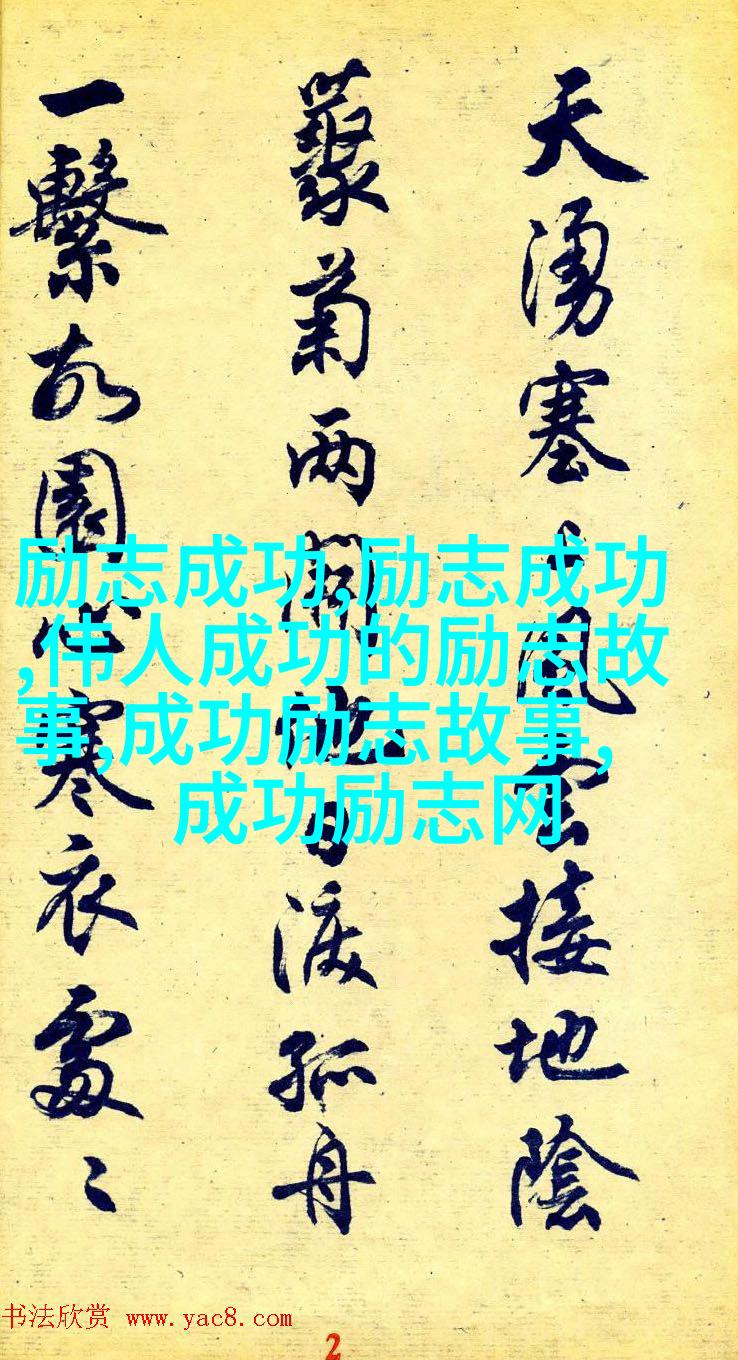 天湧塞上風雲接地陰
藂菊两開他日淚孤舟
一繫故園心寒衣處〻
励志成功,励志成功
,伟人成功的励志故
事,成功励志故事,
成功励志网
书法欣赏 www.yac8.com
2